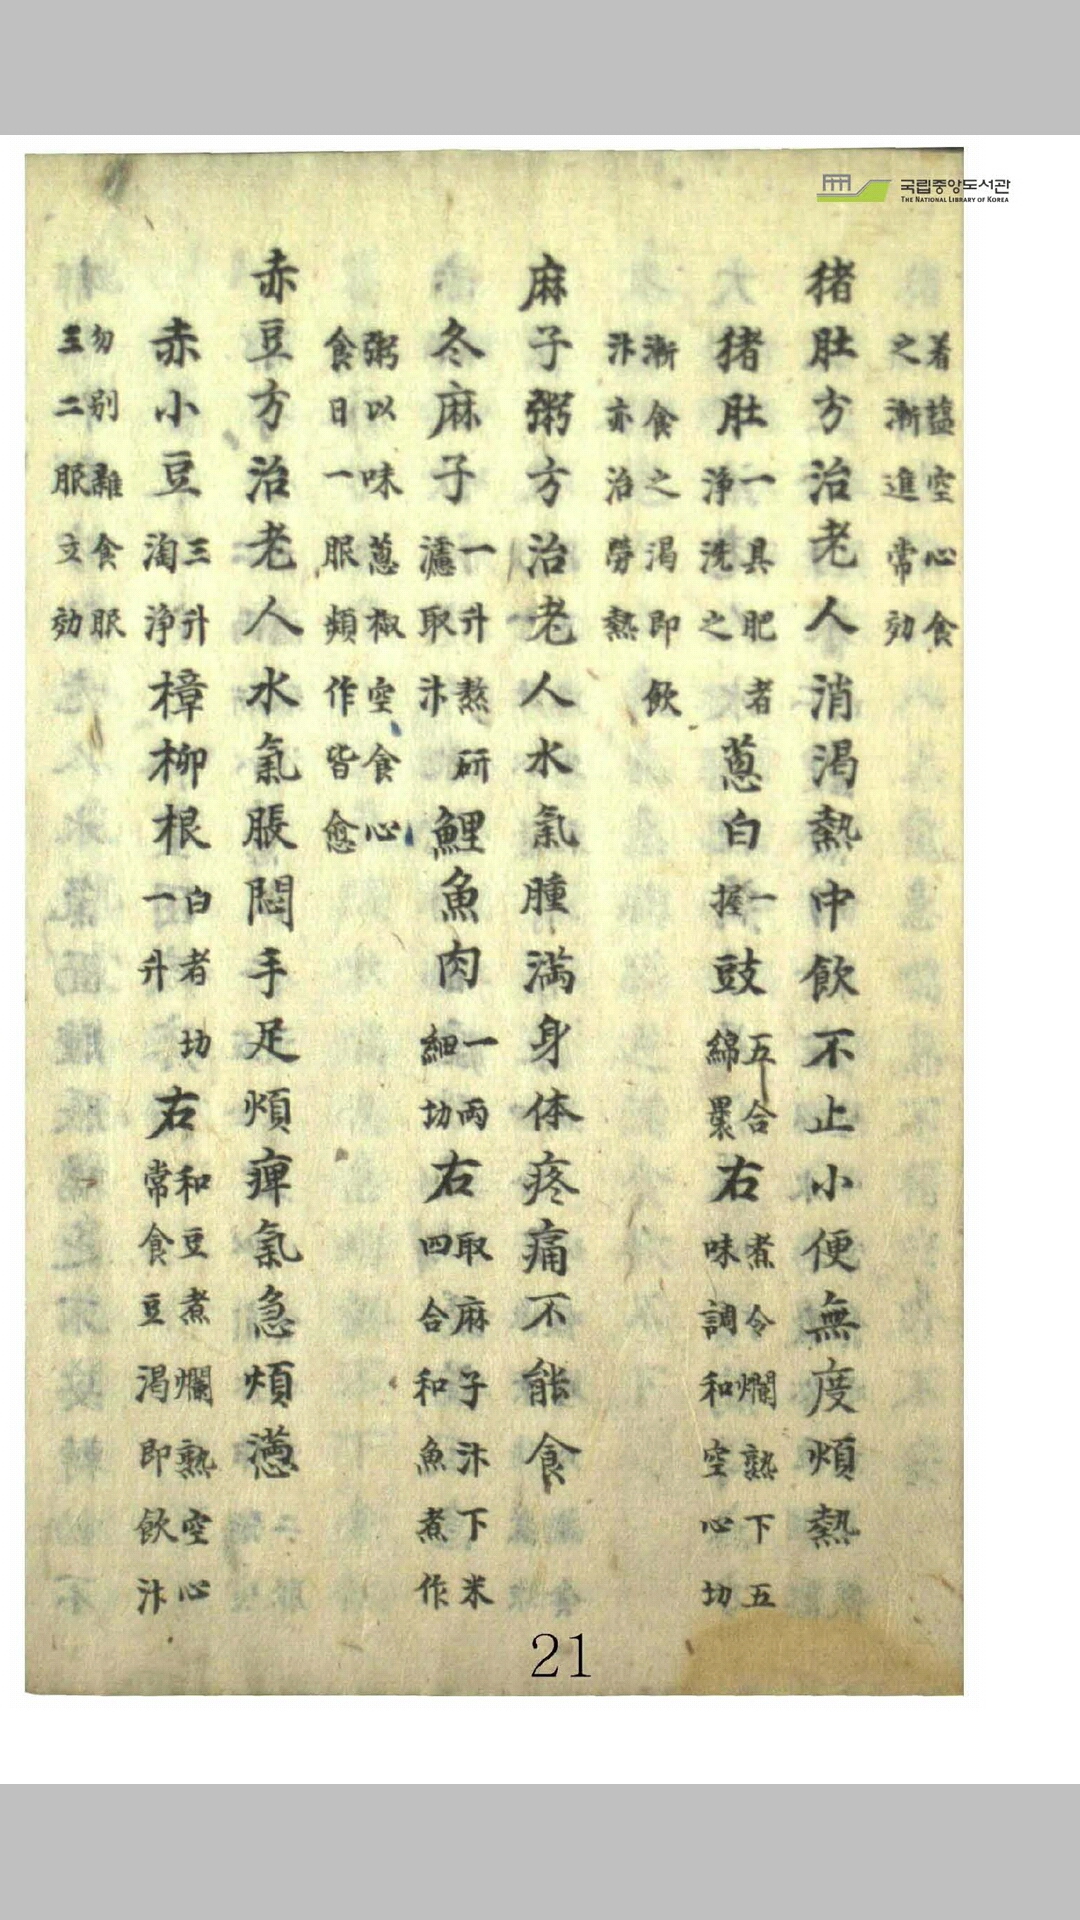 국립중앙도서관
THE NATIONAL LIBRARY OF KOREA
着盐空心食
之漸進常効
猪肚方治老人消渴熱中飲不止小便無度煩熱
猪肚一具肥者淨洗之葱白一握豉五合綿裹右煮令爛熟下五味調和空心切
漸食之渴即飲
汁亦治勞熱
麻子粥方治老人水氣腫滿身体疼痛不能食
冬麻子一升熬研濾取汁鯉魚肉一兩細切右取麻子汁下米四合和魚煮作
粥以味葱椒空食心
食日一服頻作皆愈
赤豆方治老人水氣脹悶手足煩痺氣急煩懣
赤小豆三升淘淨樟柳根白者切一升右和豆煮爛熟空心常食豆渴即飲汁
勿别雜食服
三二服立効
21